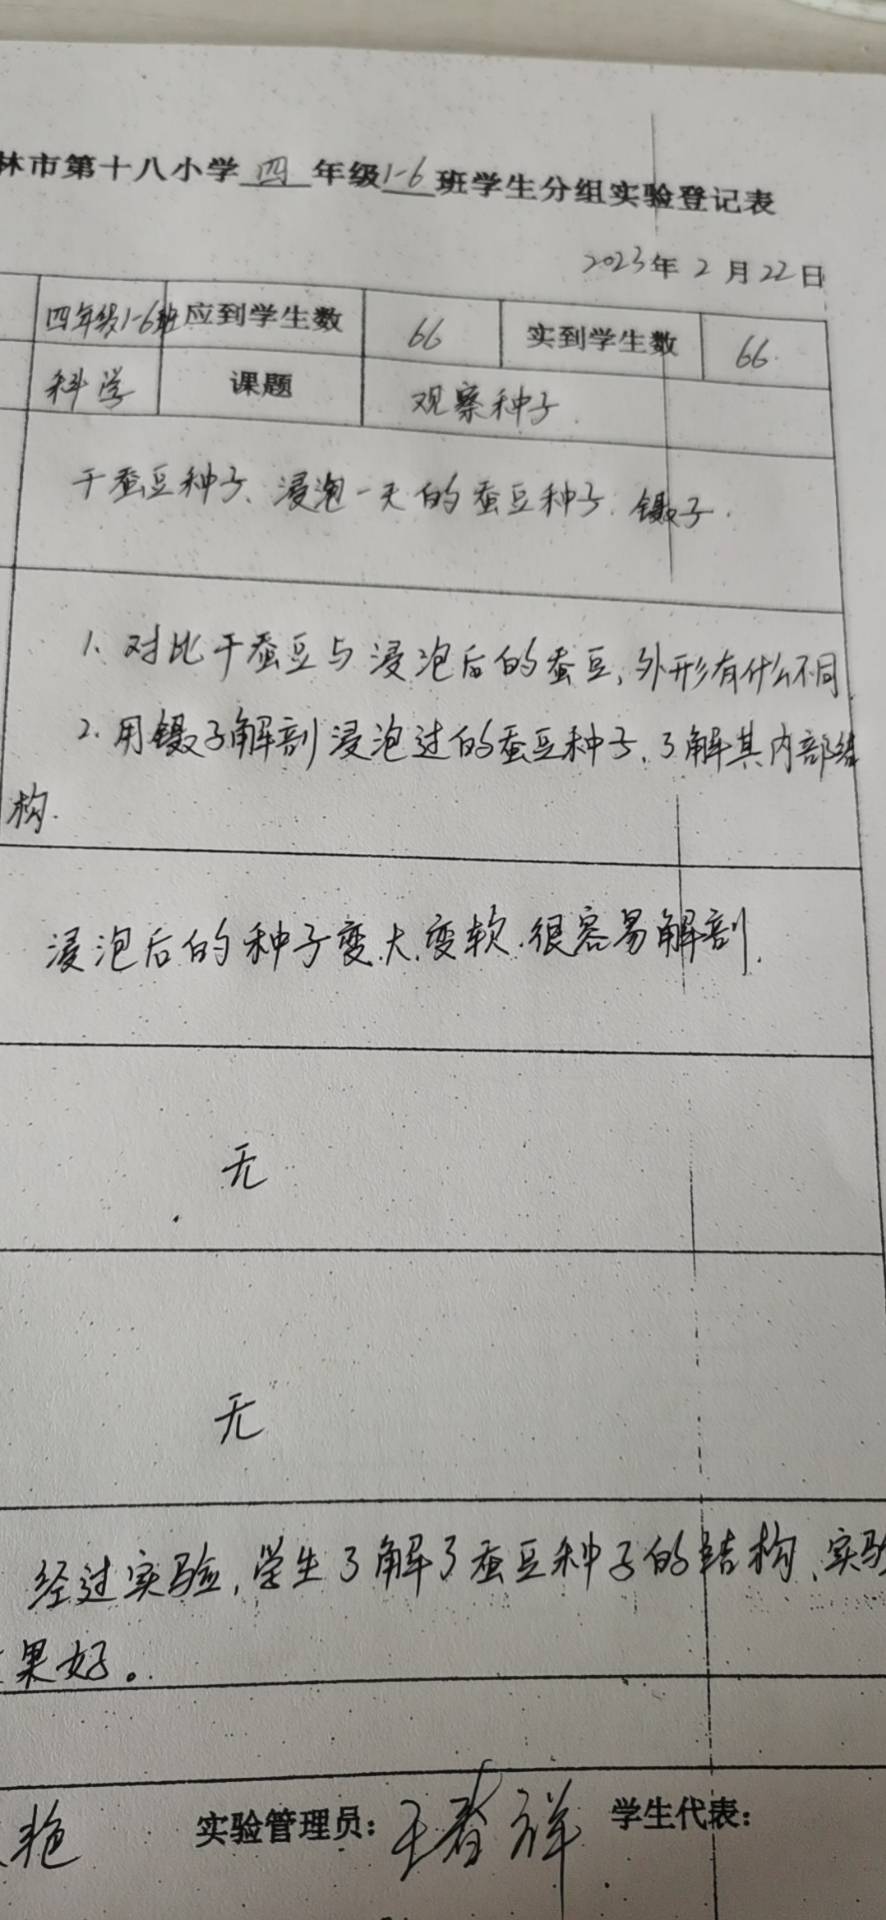 林市第十八小学四年级1-6班学生分组实验登记表
2023年2月22日
四年级1-6班 应到学生数 66 实到学生数 66
科学 课题 观察种子
干蚕豆种子、浸泡一天的蚕豆种子、镊子.
1、对比干蚕豆与浸泡后的蚕豆,外形有什么不同
2.用镊子解剖浸泡过的蚕豆种子,了解其内部结
构.
浸泡后的种子变大,变软.很容易解剖.
无
无
经过实验,学生了解了蚕豆种子的结构、实验
果好。
艳 实验管理员: 王春祥 学生代表: